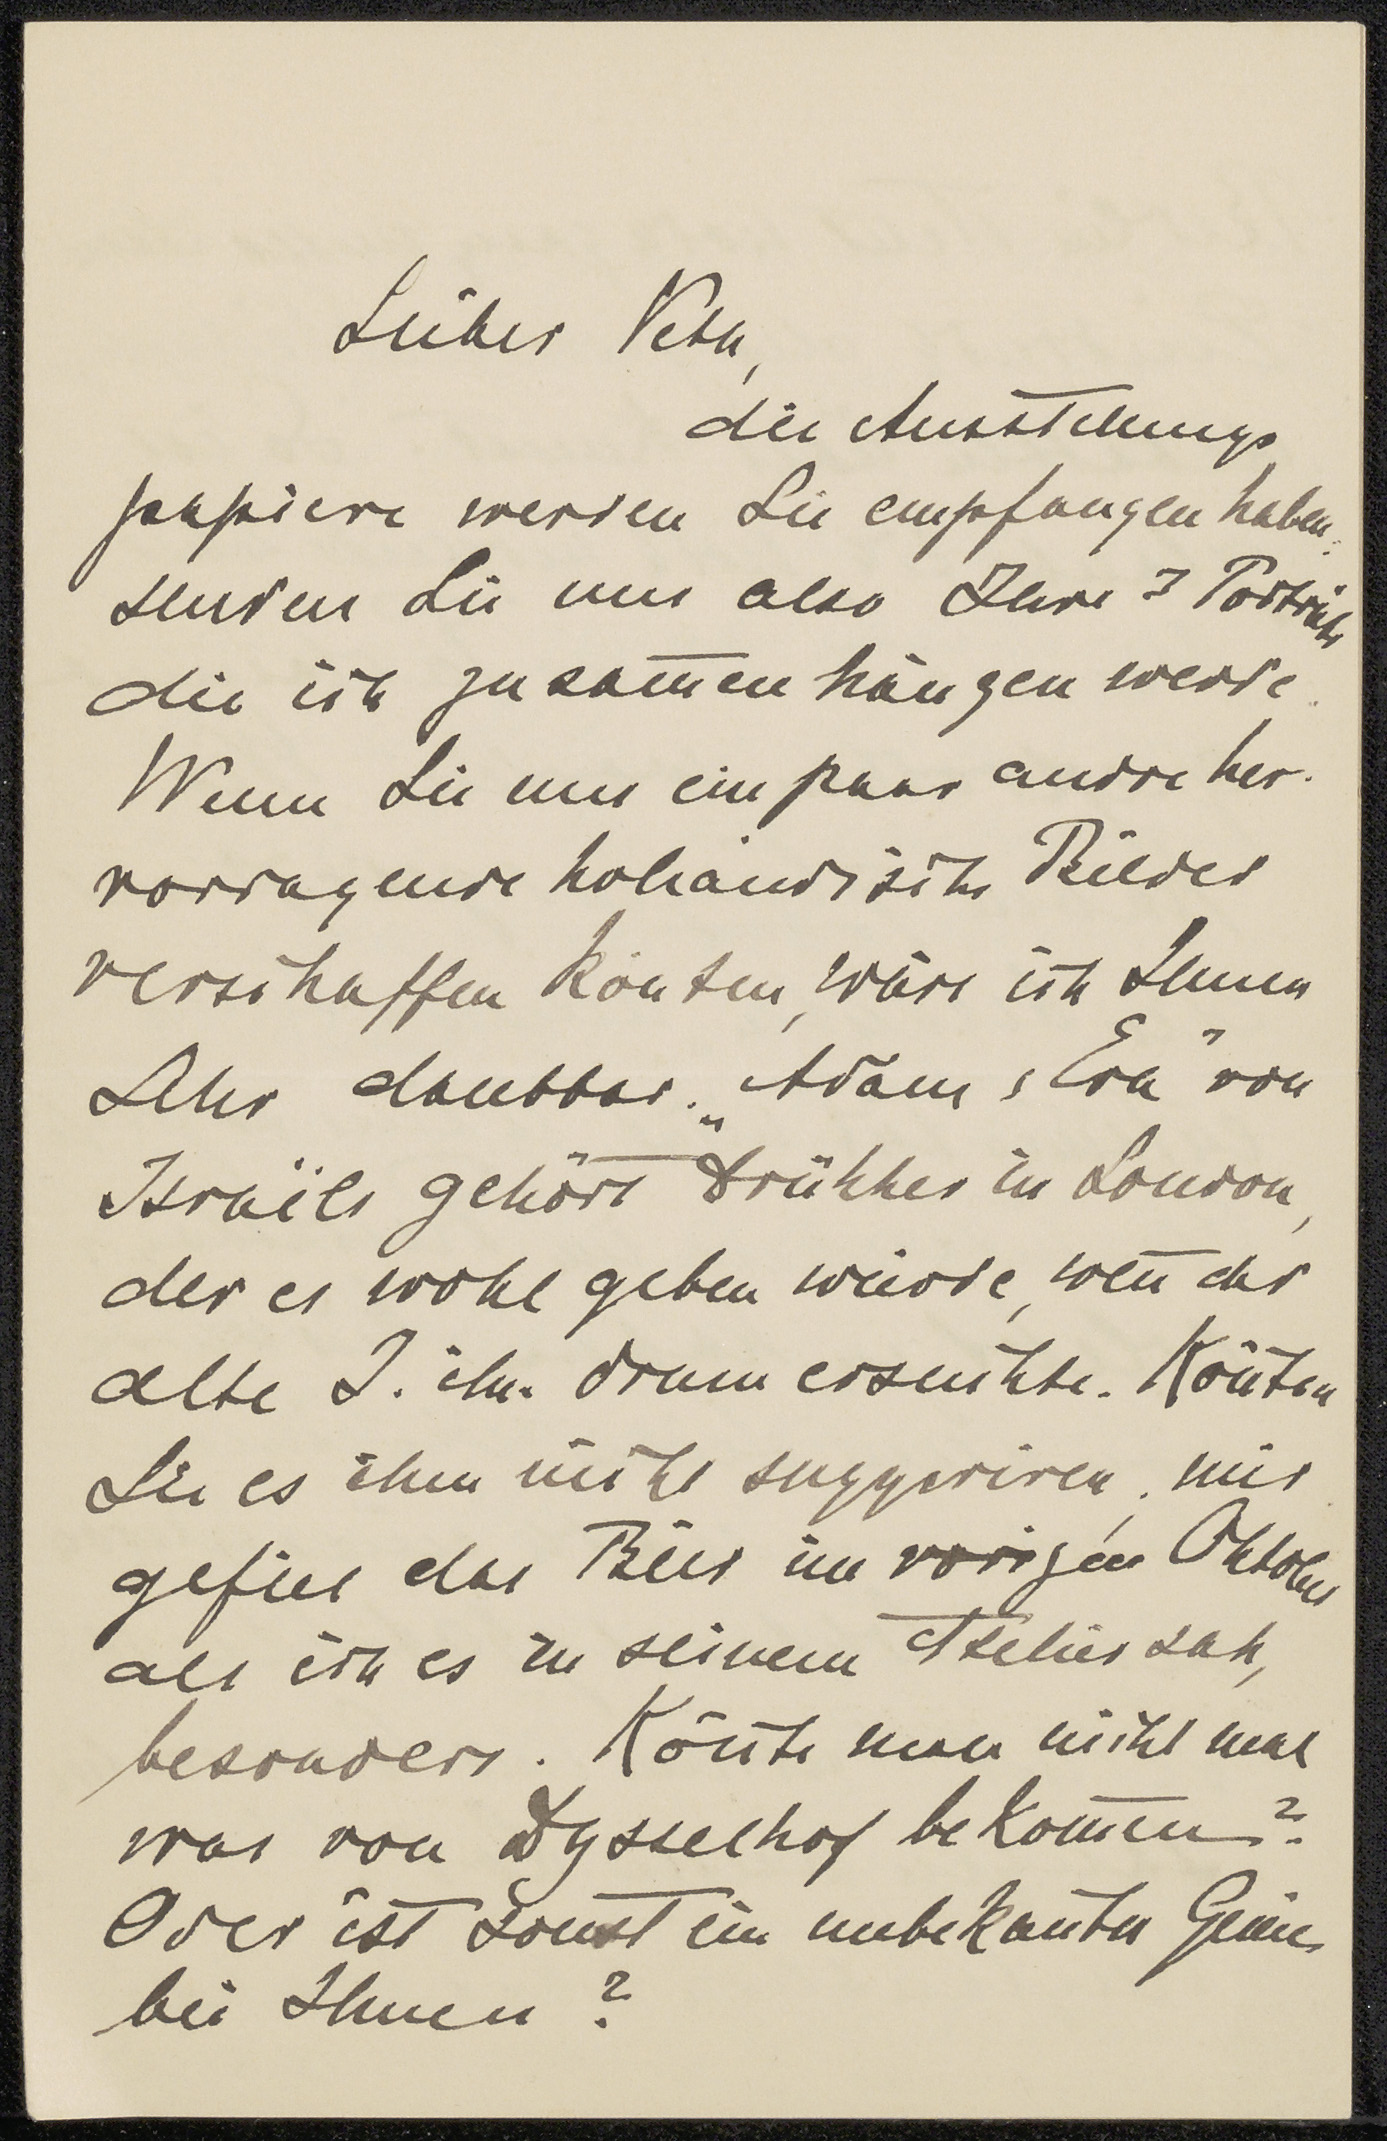 Lieber Veth,
die Ausstellungs
papiere werden Sie empfangen haben.
senden Sie uns also Ihre 3 Porträts
die ich zusam̅en hängen werde.
Wenn Sie uns ein paar andre her-
vorragende holländische Bilder
verschaffen könten, wäre ich Ihnen
Sehr dankbar. „Adam & Eva" von
Israëls gehört Drükker in London,
der es wohl geben würde, wen̅ der
alte I. ihn drum ersuchte. Kön̅ten
Sie es ihm nicht suggeriren, mir
gefiel das Bild im vorigen Oktober
als ich es in seinem Atelier sah,
besonders. Kön̅te man nicht mal
was von Dysselhof bekom̅en?
Oder ist sonst ein unbekanter Genie
bei Ihnen?